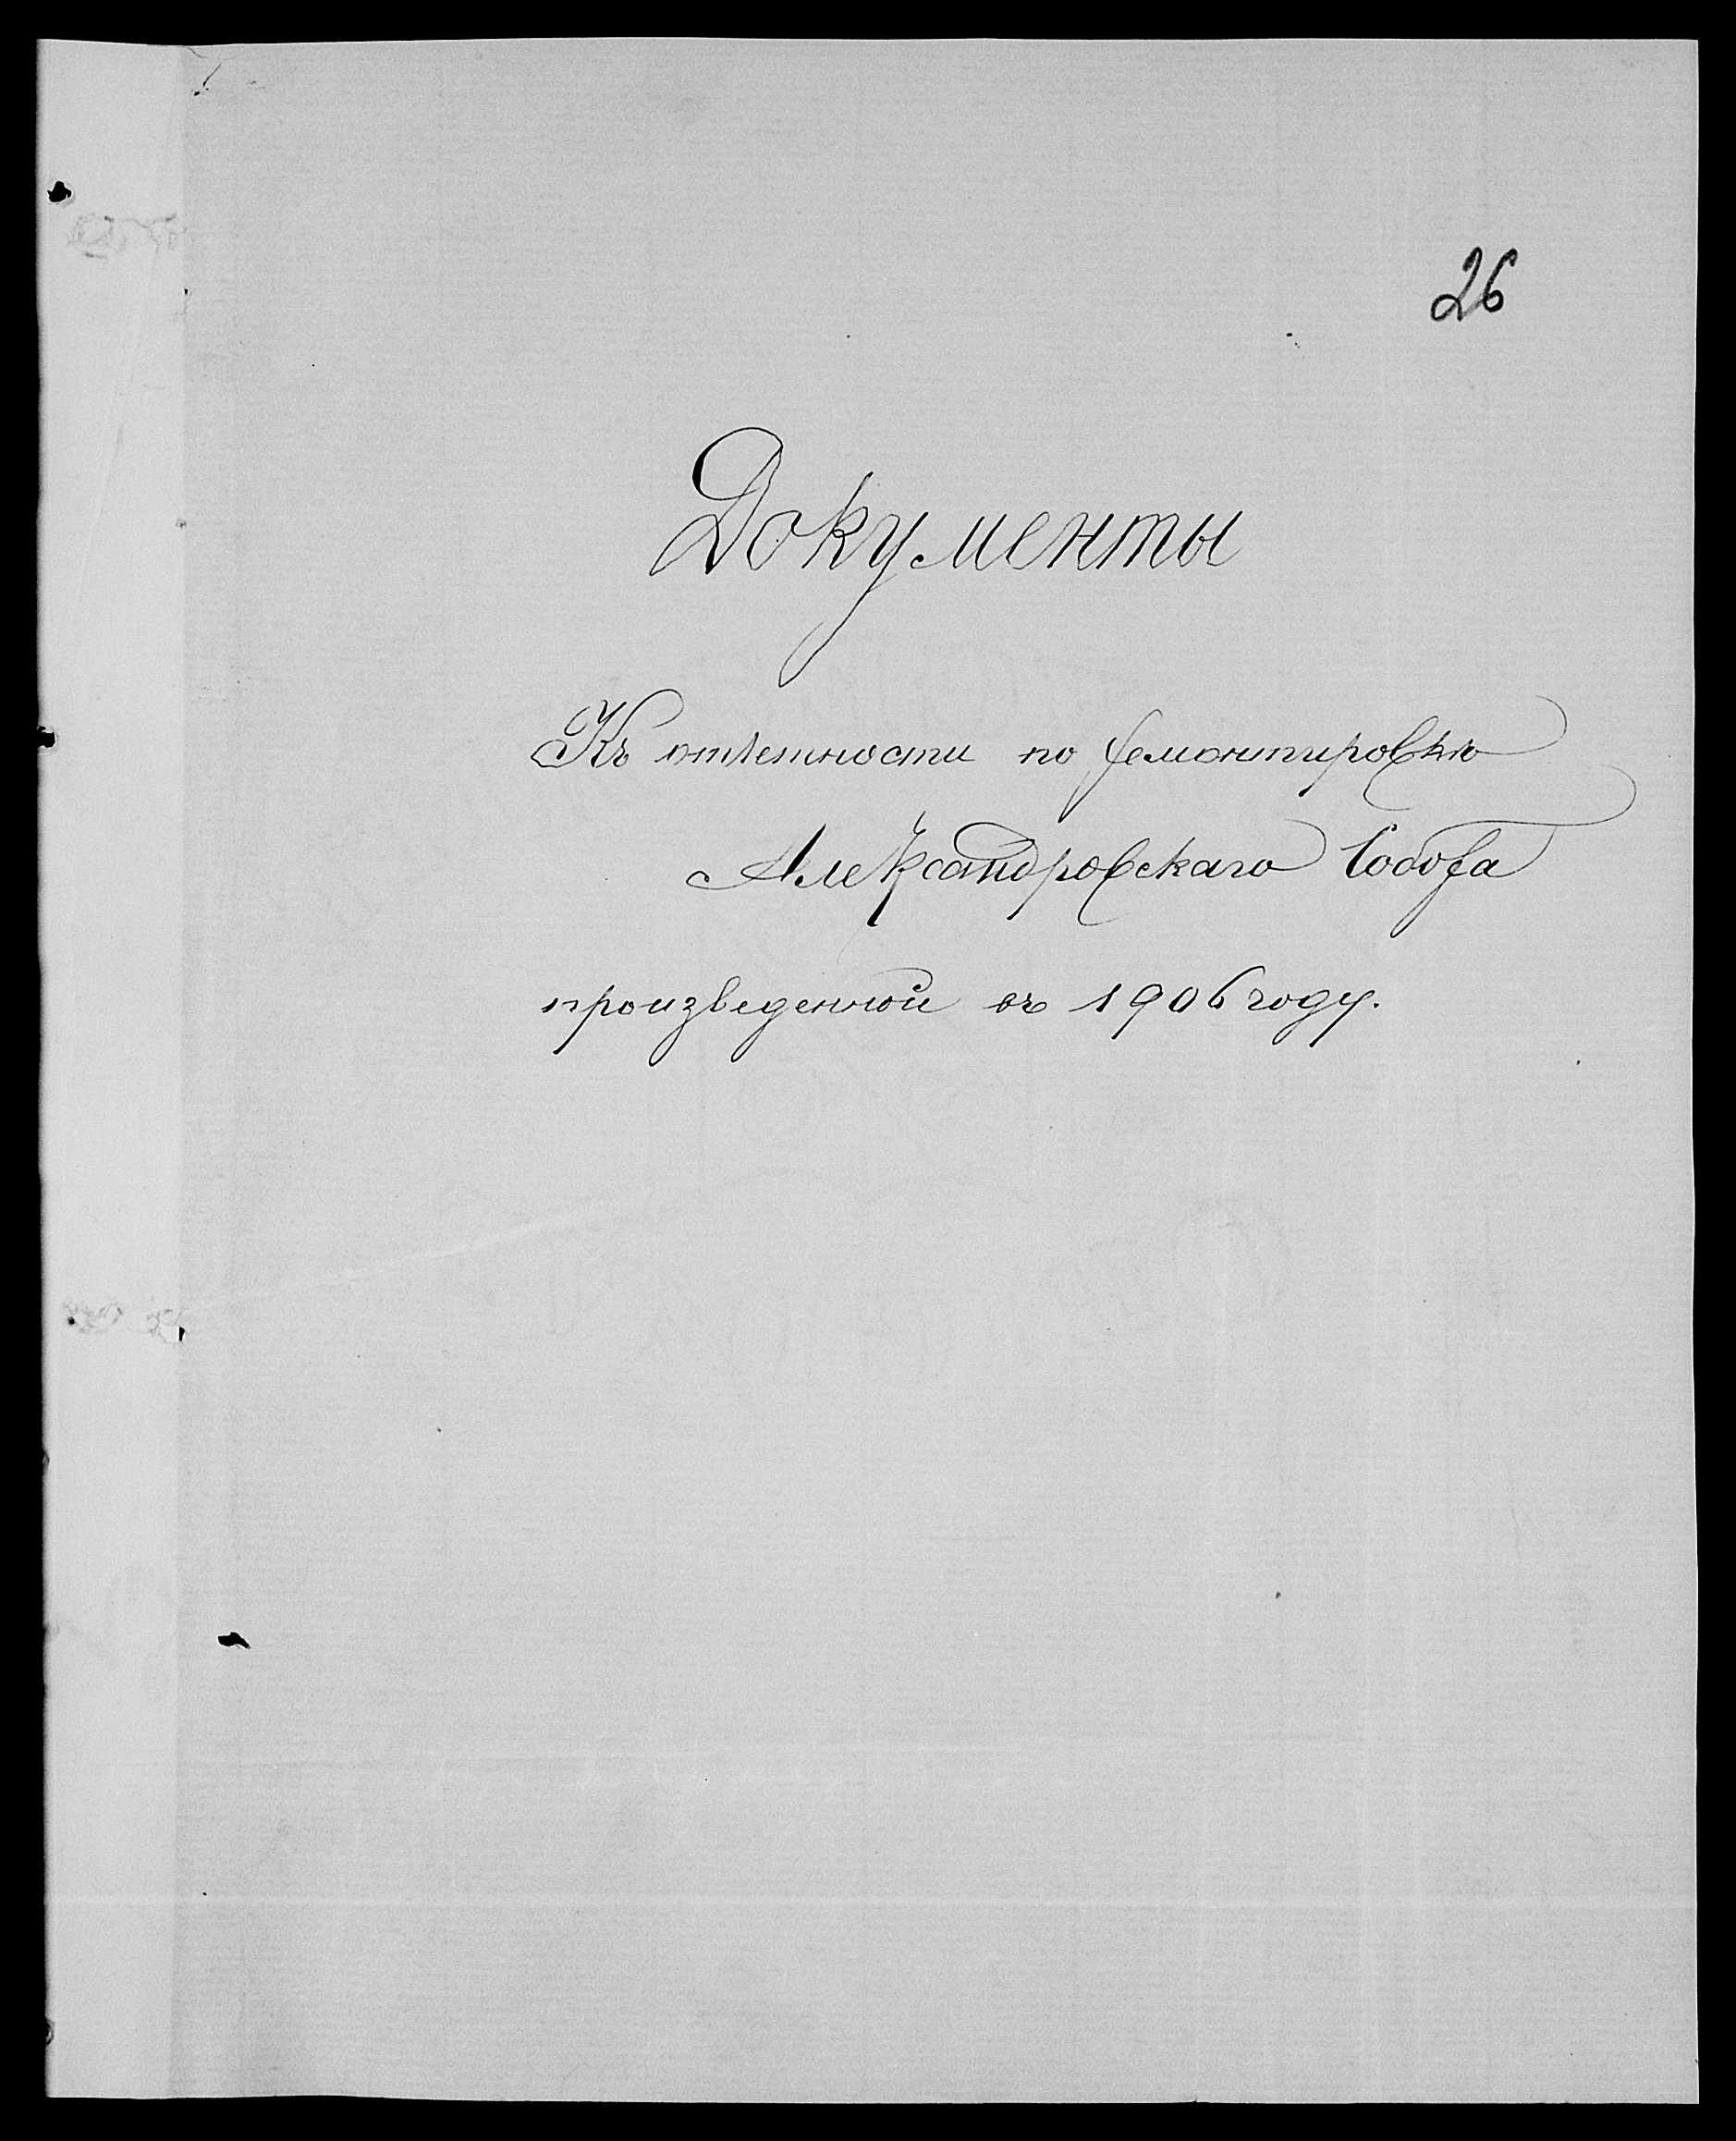 26
Документы
Къ отчетности по ремонтировкѣ
Александровскаго Собора
произведенной въ 1906 году.